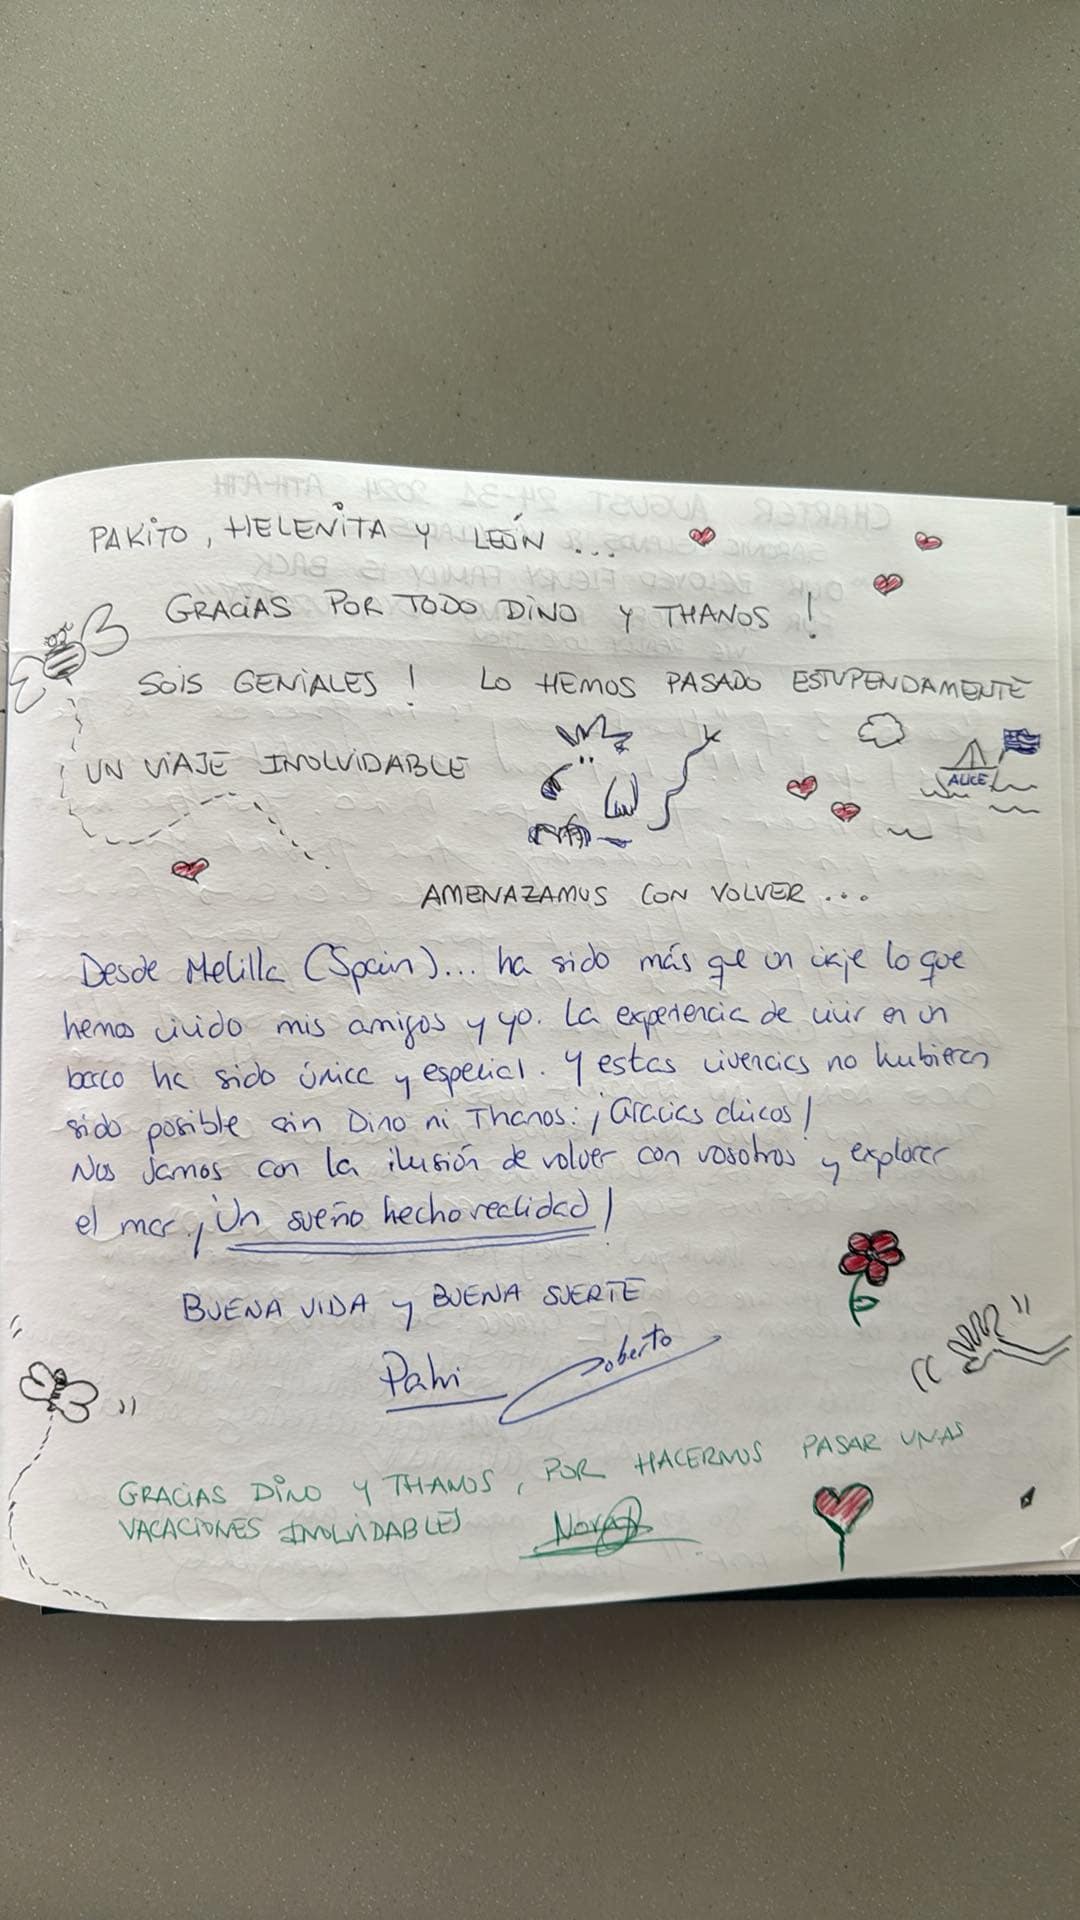 PAKITO, HELENITA Y LEÓN ...
GRACIAS POR TODO DINO Y THANOS !
SOIS GENIALES ! LO HEMOS PASADO ESTUPENDAMENTE
UN VIAJE INOLVIDABLE
ALICE
AMENAZAMOS CON VOLVER ...
Desde Melilla (Spain)... ha sido más que un viaje lo que
hemos vivido mis amigos y yo. La experiencia de vivir en un
barco ha sido única y especial. Y estas vivencias no hubieran
sido posible sin Dino ni Thanos: ¡Gracias chicos!
Nos vamos con la ilusión de volver con vosotros y explorar
el mar. ¡Un sueño hecho realidad!
BUENA VIDA Y BUENA SUERTE
Roberto
GRACIAS DINO Y THANOS, POR HACERNOS PASAR UNAS
VACACIONES INOLVIDABLES